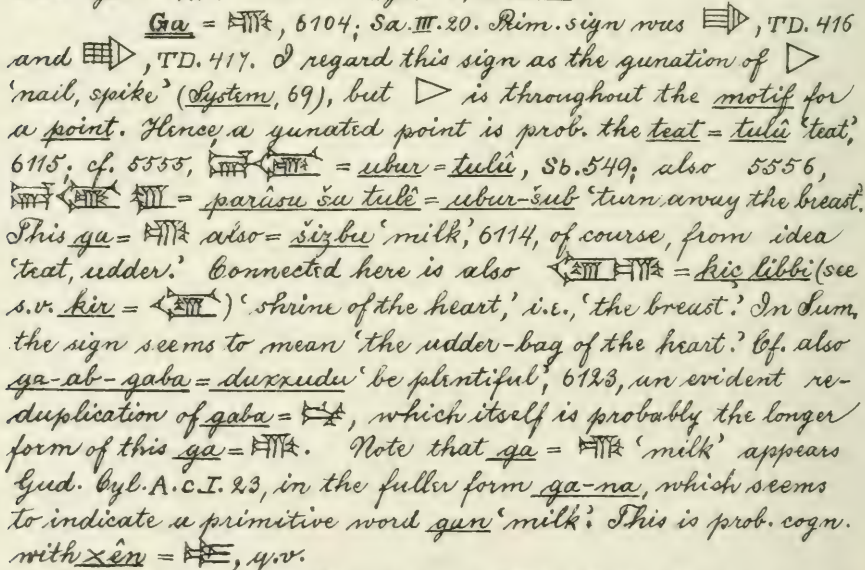 Ga = 𒂵, 6104; Sa. III. 20. Prim. sign was , TD. 416
and , TD. 417. I regard this sign as the gunation of ▷
'nail, spike' (System, 69), but ▷ is throughout the motif for
a point. Hence, a gunated point is prob. the teat = tulû 'teat,'
6115; cf. 5555, = ubur = tulû, Sb. 549; also 5556,
= parâsu ša tulê = ubur-šub 'turn away the breast.'
This ga = also = šizbu 'milk,' 6114, of course, from idea
'teat, udder.' Connected here is also = kiç libbi (see
s.v. kir = ) 'shrine of the heart,' i.e., 'the breast.' In Sum.
the sign seems to mean 'the udder-bag of the heart.' Cf. also
ga-ab-gaba = duxxudu 'be plentiful', 6123, an evident re-
duplication of gaba = , which itself is probably the longer
form of this ga = . Note that ga = 'milk' appears
Gud. Cyl. A. c. I. 23, in the fuller form ga-na, which seems
to indicate a primitive word gan 'milk.' This is prob. cogn.
with xên = , q.v.